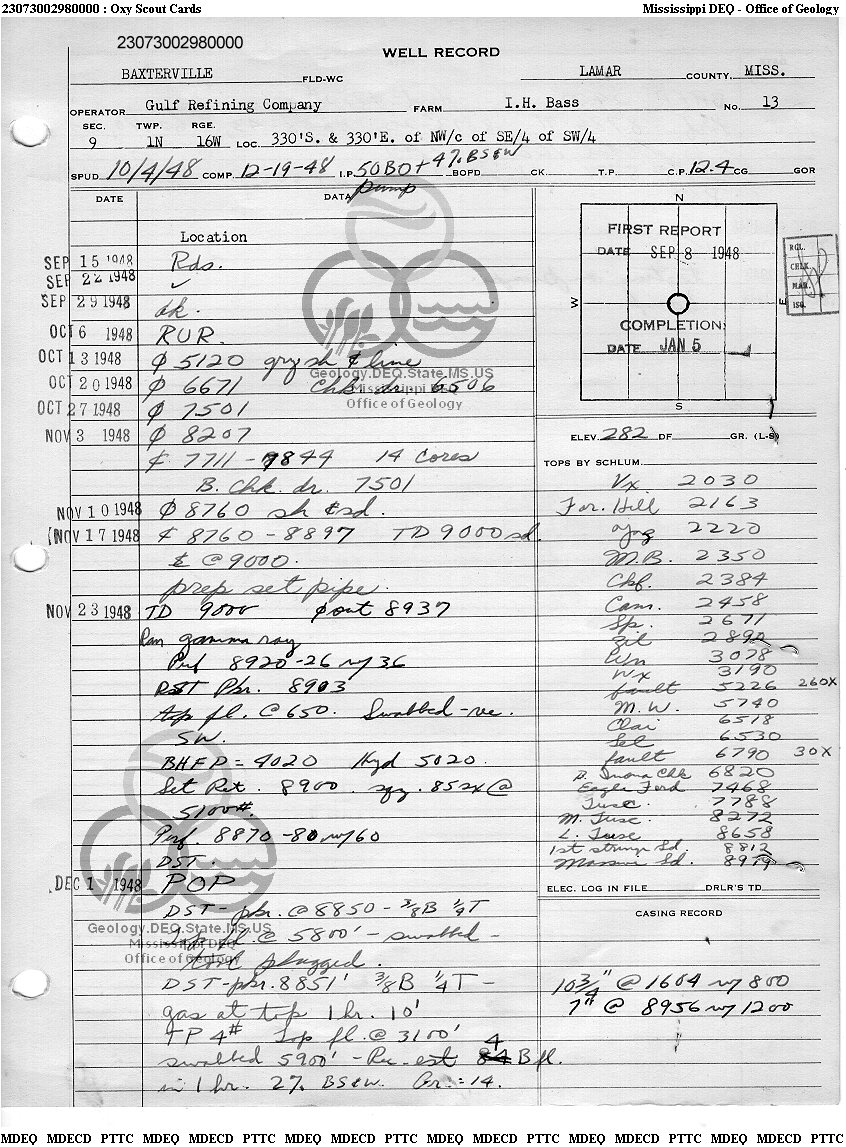 23073002980000 : Oxy Scout Cards
Mississippi DEQ - Office of Geology
23073002980000
WELL RECORD
BAXTERVILLE FLD-WC LAMAR COUNTY, MISS.
OPERATOR Gulf Refining Company FARM I.H. Bass No. 13
SEC. TWP. RGE.
9 1N 16W LOC. 330'S. & 330'E. of NW/c of SE/4 of SW/4
SPUD 10/4/48 COMP. 12-19-48 I.P. 50BO + 4% BS&W BOPD CK. T.P. C.P. 12.4 CG GOR
pump
DATE DATA
Location
SEP 15 1948 Rds.
SEP 22 1948 ✓
SEP 29 1948 dk.
OCT 6 1948 RUR.
OCT 13 1948 ϕ 5120 gry sh & lime
OCT 20 1948 ϕ 6671 Chk dr. 6506
OCT 27 1948 ϕ 7501
NOV 3 1948 ϕ 8207
₵ 7711 - 7844 14 Cores
B. Chk. dr. 7501
NOV 10 1948 ϕ 8760 sh & sd.
NOV 17 1948 ₵ 8760 - 8897 TD 9000 sd.
@ 9000.
prep set pipe.
NOV 23 1948 TD 9000 ϕ out 8937
Ran gamma ray
Perf 8920-26 w/36
DST Pkr. 8903
Top fl. @ 650. Swabbed - rec.
SW.
BHFP = 4020 Hyd 5020.
Set Ret. 8900. sqz. 85sx @
5100#.
Perf. 8870-80 w/60
DST.
DEC 1 1948 POP
DST - pkr. @ 8850 - 3/8B 1/4T
Top fl. @ 5800' - swabbed -
tool plugged.
DST - pkr. 8851' 3/8B 1/4T -
gas at top 1 hr. 10'
TP 4# Top fl. @ 3100'
swabbed 5900' - Rec. est 4 B fl.
in 1 hr. 2% BS&W. Gr. = 14.
N
W
E
S
FIRST REPORT
DATE SEP 8 1948
COMPLETION:
DATE JAN 5
RGL.
CHLK.
MAR.
ISQ.
ELEV. 282 DF GR. (L-S)
TOPS BY SCHLUM.
Vx 2030
For. Hill 2163
2220
M.B. 2350
Ckf. 2384
Cam. 2458
Sp. 2671
Zil 2892
Wn 3078
Wx 3190
fault 5226 260X
M.W. 5740
Clai 6518
Sel 6530
fault 6790 30X
Chk 6820
Eagle Ford 7468
Tusc. 7788
M. Tusc. 8272
L. Tusc. 8658
1st stringer Sd. 8812
Massive Sd. 8979
ELEC. LOG IN FILE DRLR'S TD
CASING RECORD
10 3/4" @ 1604 w/ 800
7" @ 8956 w/ 1200
Geology.DEQ.State.MS.US
Mississippi DEQ
Office of Geology
Geology.DEQ.State.MS.US
Mississippi DEQ
Office of Geology
MDEQ MDECD PTTC MDEQ MDECD PTTC MDEQ MDECD PTTC MDEQ MDECD PTTC MDEQ MDECD PTTC MDEQ MDECD PTTC